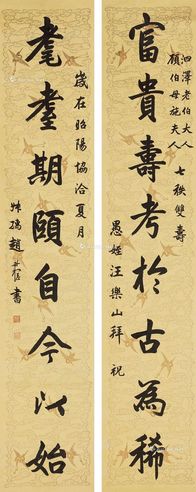 泗澤老伯大人
顧伯母施夫人
七秩雙壽
富貴壽考於古為稀
愚姪汪樂山拜祝
歲在昭陽協洽夏月
耄耋期頤自今以始
趙 書